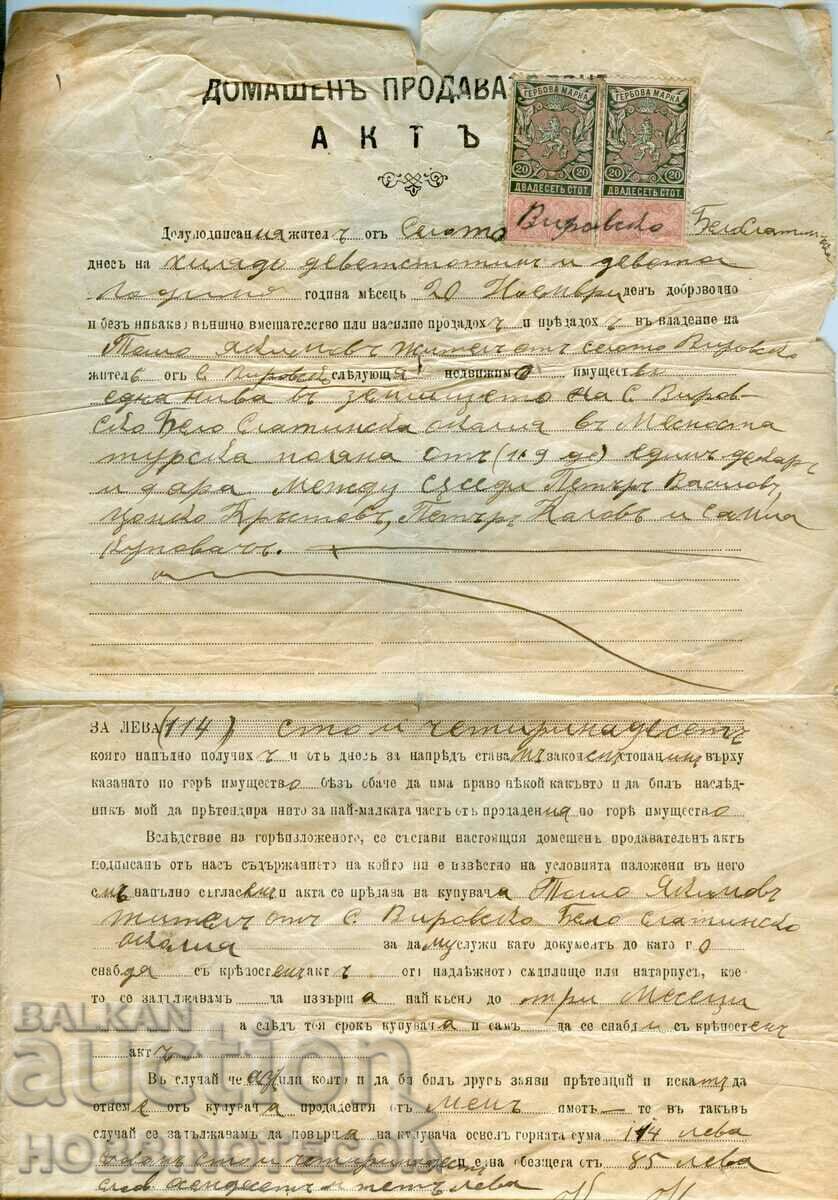 ДОМАШЕНЪ ПРОДАВА
АКТЪ
ГЕРБОВА МАРКА ГЕРБОВА МАРКА
20 20 20 20
ДВАДЕСЕТЬ СТОТ. ДВАДЕСЕТЬ СТОТ.
Долуподписания жителъ отъ Селото Вировско
днесъ на хилядо деветстотин и девета
година мѣсецъ 20 Ноември день доброволно
и безъ никакво външно вмешателство или насилие продадохъ и прѣдадохъ въ владение на
Тошо Якимовъ жителъ отъ селото Вировско
жителъ отъ с. Вировско следующия недвижимо имущество
една нива въ землището на с. Виров-
ско Бело Слатинска околия въ Месноста
турска поляна отъ (1.9 де) единъ декаръ
и дара между съседи Петъръ Василовъ,
Цонко Кръстовъ, Петъръ и
ЗА ЛЕВА (114) сто и четиринадесетъ
която напълно получихъ и отъ днесъ за напрѣдъ става законенъ стопанинъ върху
казаното по горѣ имущество безъ обаче да има право нѣкой какъвто и да билъ наслѣд-
никъ мой да прѣтендира нито за най-малката часть отъ продадения по горѣ имущество
Вслѣдствие на горѣизложеното, се състави настоящия домешенъ продавателенъ актъ
подписанъ отъ насъ съдържанието на който ни е извѣстно на условията изложени въ него
смъ напълно согласенъ и акта се прѣдава на купувача Тошо Якимовъ
жителъ отъ с. Вировско Бело слатинско
околия за да му служи като документъ до като го
снабдя съ крѣпостенъ актъ отъ надлѣжното сѫдилище или натариусъ, кое-
то се задължавамъ да извърша най късно до три месеци
а слѣдъ тоя срокъ купувача и самъ да се снабди съ крѣпостенъ
актъ
Въ случай че азъ или който и да би билъ другъ заяви прѣтенций и искатъ да
отнеме отъ купувача продадения отъ менъ имотъ — то въ такъвъ
случай се задължавамъ да повърна на купувача освенъ горната сума 114 лева
сто и четиринадесет и една безщета отъ 85 лева
осемдесетъ и петь лева
BALKAN
auction